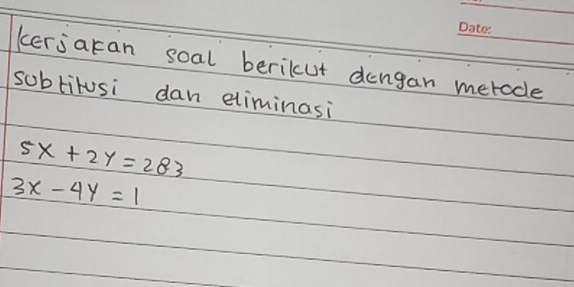 Date:
kerjakan soal berikut dengan metode
subtitusi dan eliminasi
5x + 2y = 283
3x - 4y = 1